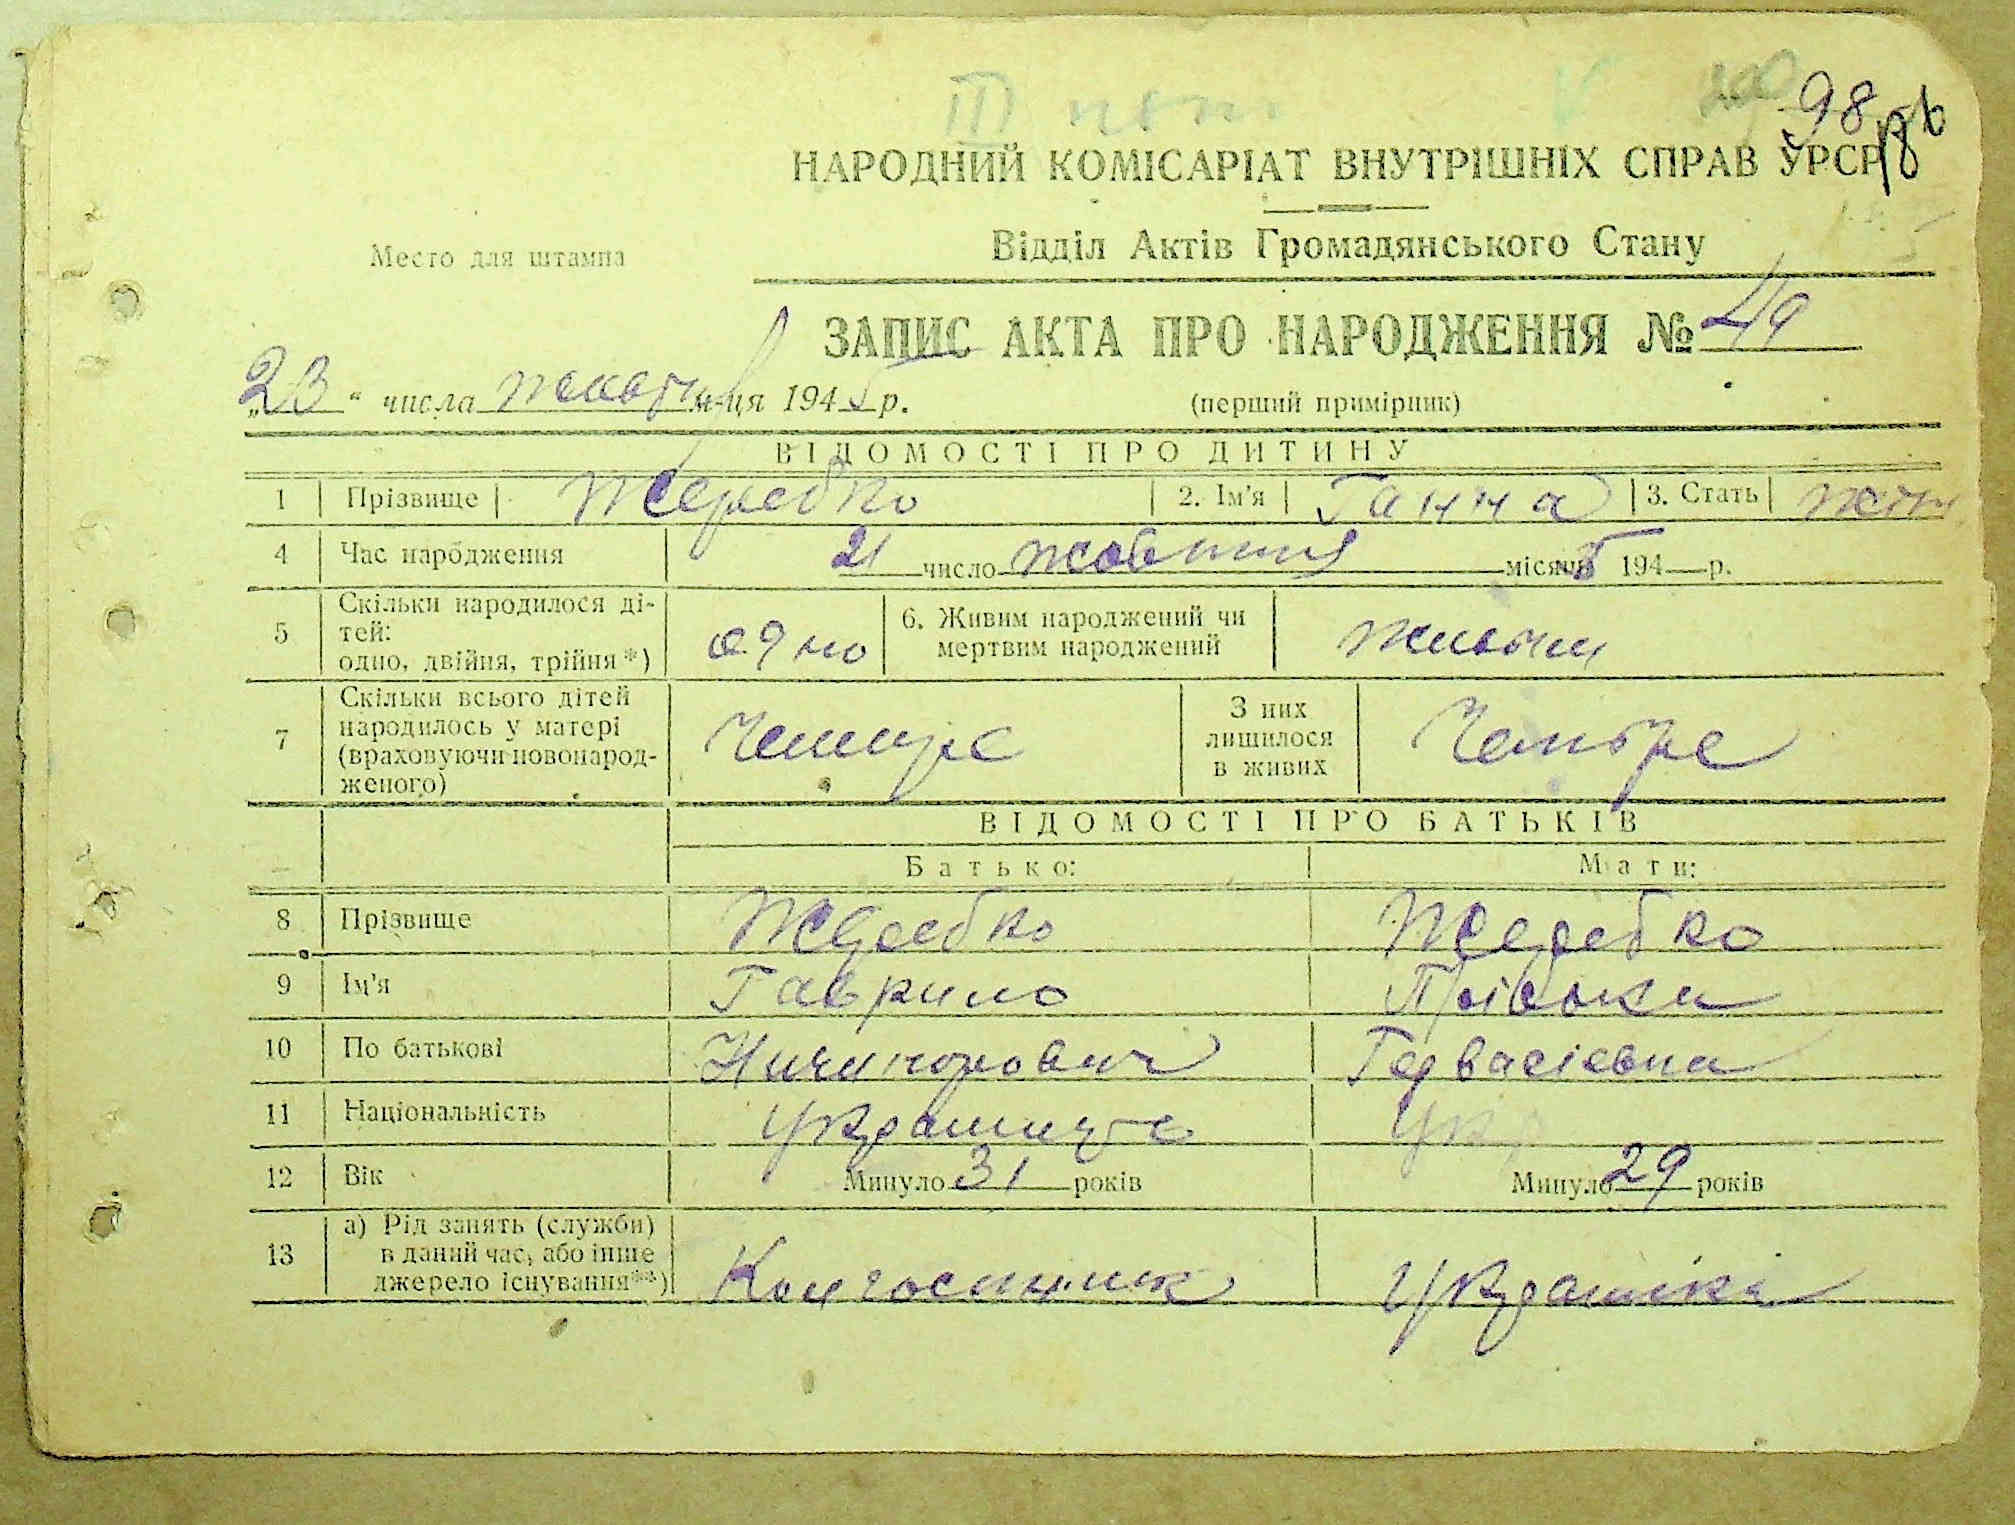 III
98
НАРОДНИЙ КОМІСАРІАТ ВНУТРІШНІХ СПРАВ УРСР
Место для штампа
Відділ Актів Громадянського Стану
ЗАПИС АКТА ПРО НАРОДЖЕННЯ № 49
„23“ числа жовтня м-ця 1945 р. (перший примірник)
ВІДОМОСТІ ПРО ДИТИНУ
1 Прізвище Жеребко 2. Ім'я Ганна 3. Стать жін
4 Час народження 21 число жовтня місяця 5 194 р.
5 Скільки народилося ді-
тей:
одно, двійня, трійня*) одно 6. Живим народжений чи
мертвим народжений живим
7 Скільки всього дітей
народилось у матері
(враховуючи новонарод-
женого) Четире З них
лишилося
в живих Четыре
ВІДОМОСТІ ПРО БАТЬКІВ
Батько: Мати:
8 Прізвище Жеребко Жеребко
9 Ім'я Гаврило
10 По батькові Ничипорович Гервасіевна
11 Національність Укр
12 Вік Минуло 31 років Минуло 29 років
13 а) Рід занять (служби)
в даний час, або інше
джерело існування**) Колгоспник